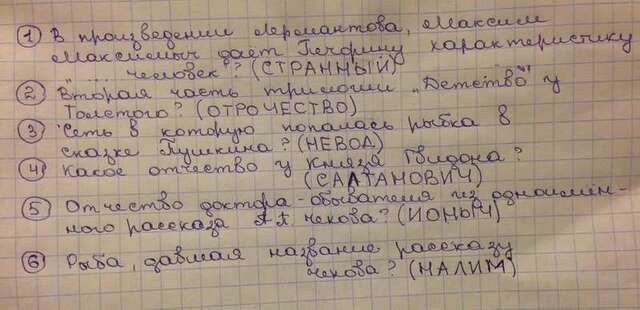 ① В произведении Лермантова, Максим
Максимыч дает Печорину характеристику
„ .... человек"? (СТРАННЫЙ)
② Вторая часть трилогии „Детство" у
Толстого? (ОТРОЧЕСТВО)
③ Сеть в которую попалась рыбка в
сказке Пушкина? (НЕВОД)
④ Какое отчество у князя Гвидона?
(САЛТАНОВИЧ)
⑤ Отчество доктора-обывателя из одноимен-
ного рассказа А.П. Чехова? (ИОНЫЧ)
⑥ Рыба, давшая название рассказу
Чехова? (НАЛИМ)